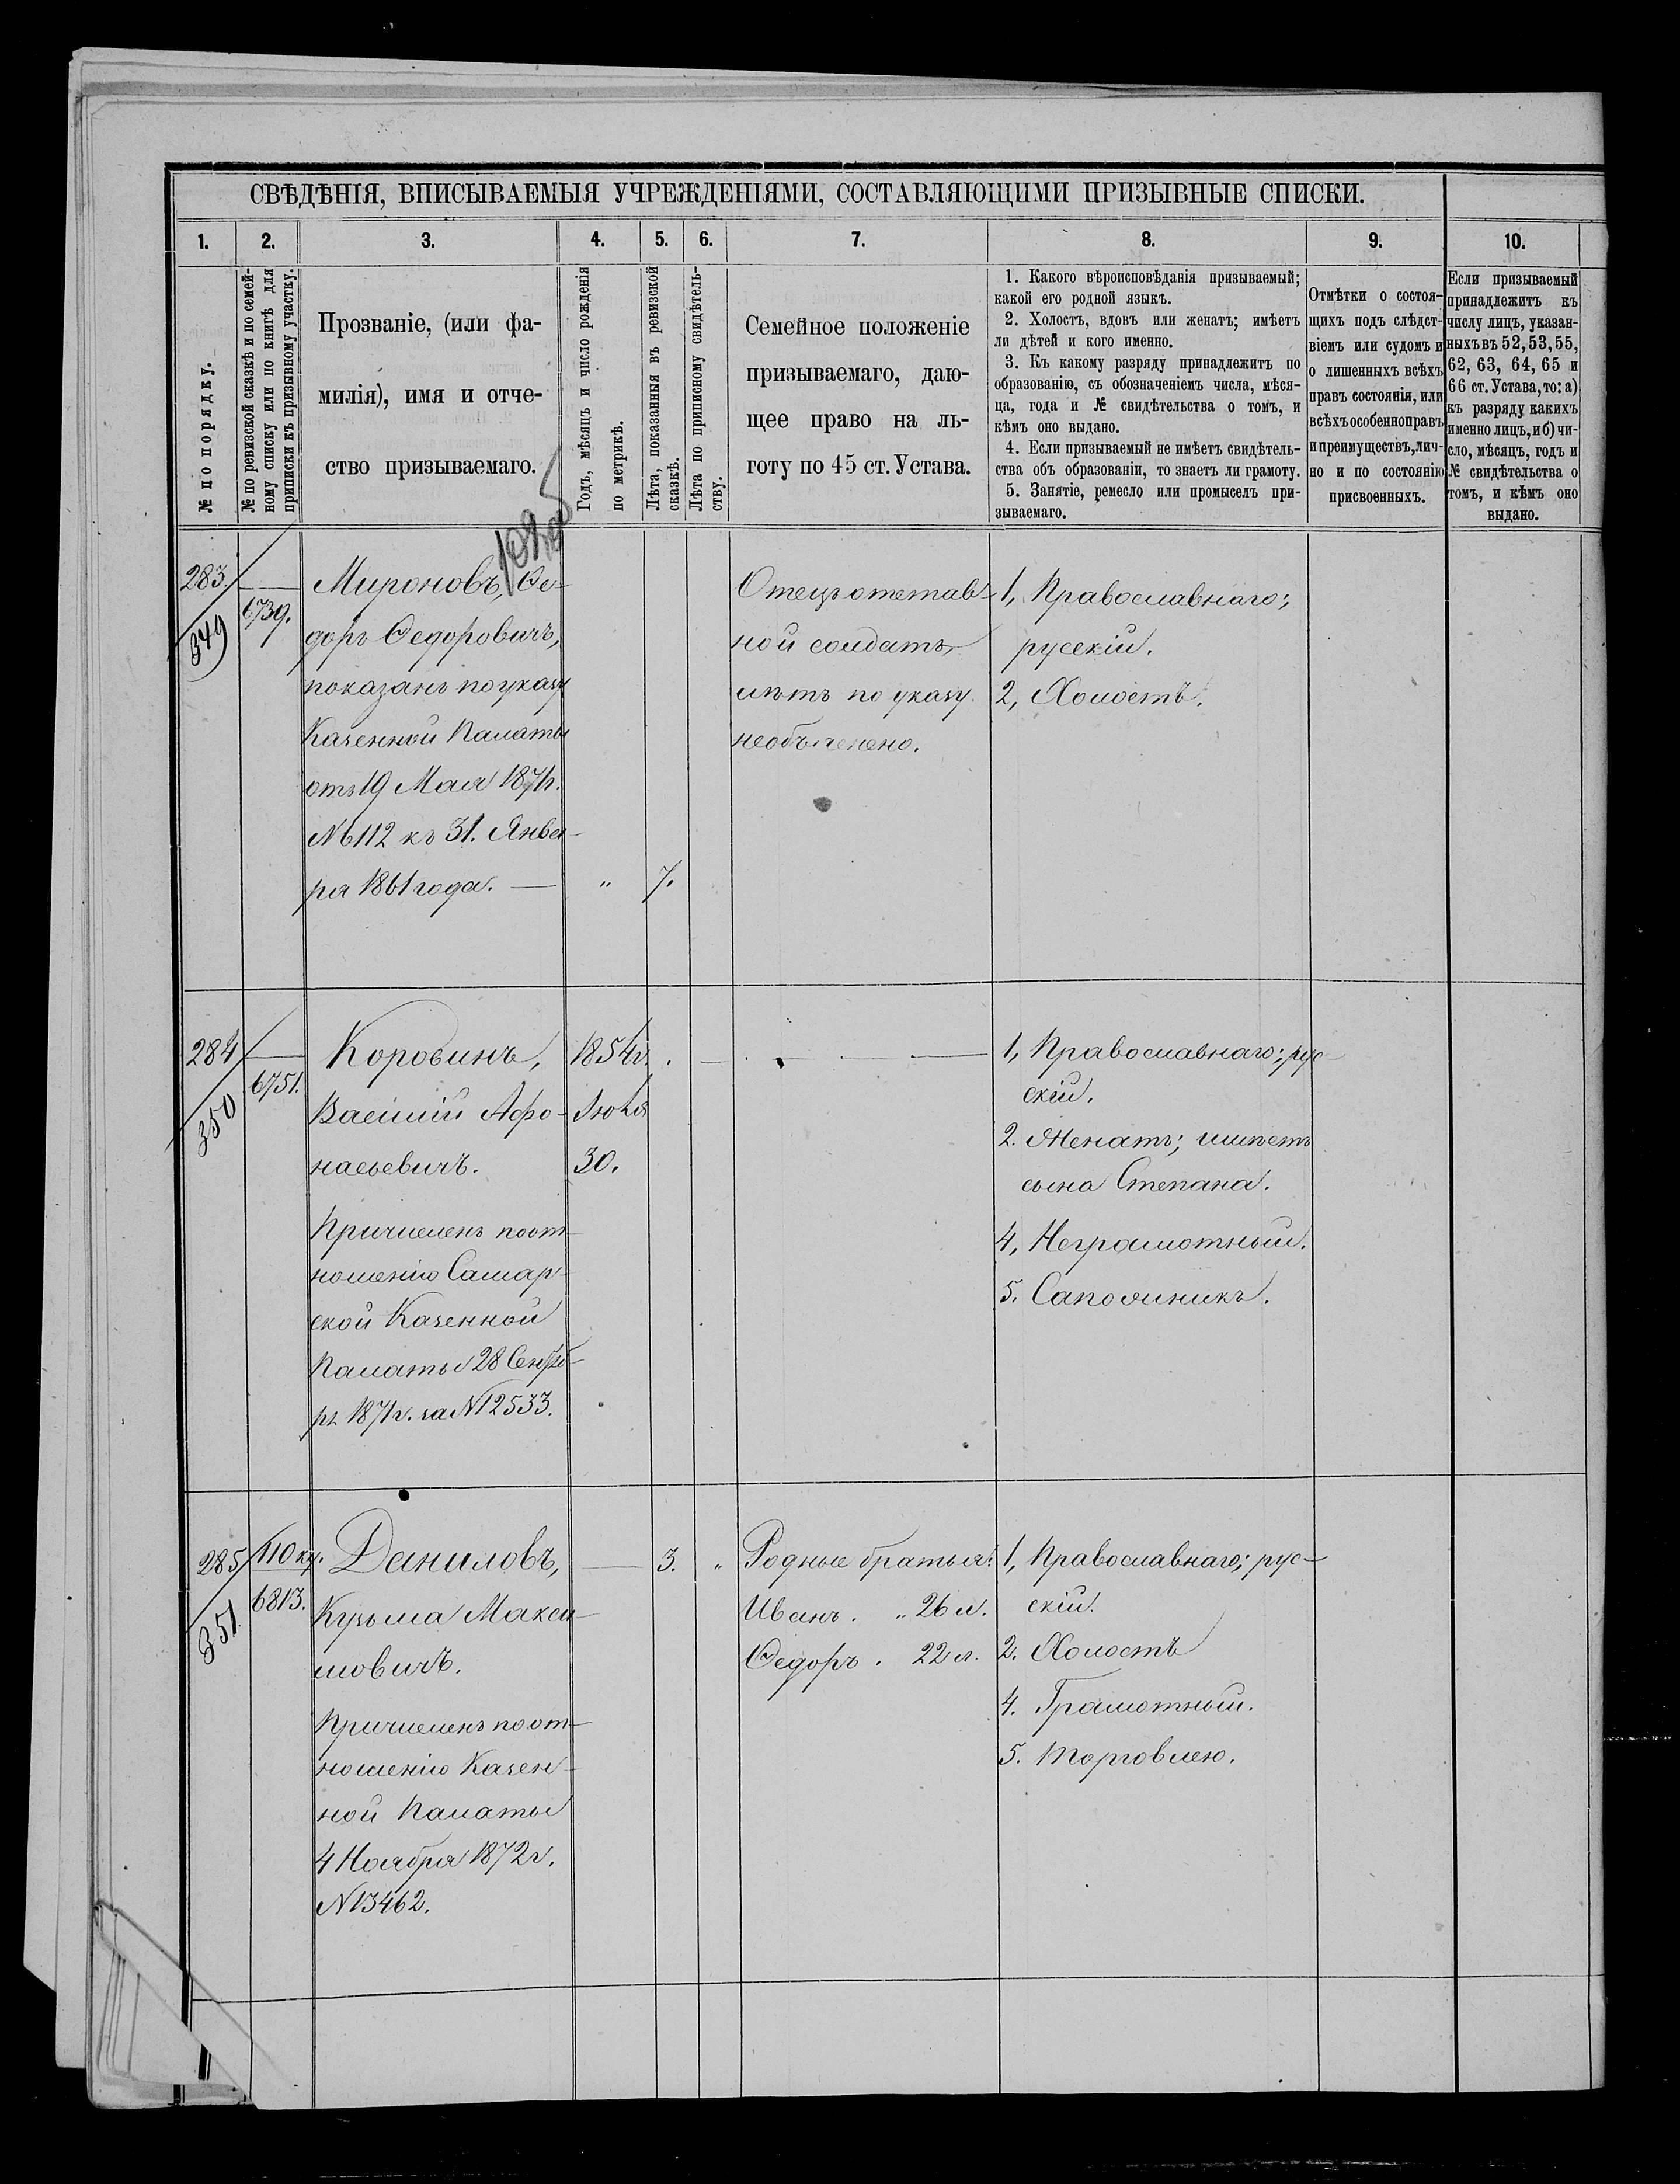 СВѢДѢНІЯ, ВПИСЫВАЕМЫЯ УЧРЕЖДЕНІЯМИ, СОСТАВЛЯЮЩИМИ ПРИЗЫВНЫЕ СПИСКИ.
1.
2.
3.
4.
5.
6.
7.
8.
9.
10.
№ по порядку.
№ по ревизской сказкѣ и по семей-
ному списку или по книгѣ для
приписки къ призывному участку.
Прозваніе, (или фа-
милія), имя и отче-
ство призываемаго.
Годъ, мѣсяцъ и число рожденія
по метрикѣ.
Лѣта, показанныя въ ревизской
сказкѣ.
Лѣта по приписному свидѣтель-
ству.
Семейное положеніе
призываемаго, даю-
щее право на ль-
готу по 45 ст. Устава.
1. Какого вѣроисповѣданія призываемый;
какой его родной языкъ.
2. Холостъ, вдовъ или женатъ; имѣетъ
ли дѣтей и кого именно.
3. Къ какому разряду принадлежитъ по
образованію, съ обозначеніемъ числа, мѣся-
ца, года и № свидѣтельства о томъ, и
кѣмъ оно выдано.
4. Если призываемый не имѣетъ свидѣтель-
ства объ образованіи, то знаетъ ли грамоту.
5. Занятіе, ремесло или промыселъ при-
зываемаго.
Отмѣтки о состоя-
щихъ подъ слѣдст-
віемъ или судомъ и
о лишенныхъ всѣхъ
правъ состоянія, или
всѣхъ особенно правъ
и преимуществъ, лич-
но и по состоянію
присвоенныхъ.
Если призываемый
принадлежитъ къ
числу лицъ, указан-
ныхъ въ 52, 53, 55,
62, 63, 64, 65 и
66 ст. Устава, то: а)
къ разряду какихъ
именно лицъ, и б) чи-
сло, мѣсяцъ, годъ и
№ свидѣтельства о
томъ, и кѣмъ оно
выдано.
283.
349
6739.
Мироновъ, Ѳе-
доръ Ѳедоровичъ,
показанъ по указу
Казенной Палаты
отъ 19 Мая 1871г.
№112 къ 31. Янва-
ря 1861 года. —
"
7.
Отецъ отстав-
ной солдатъ,
лѣтъ по указу
необъяснено.
1, Православнаго;
русскій.
2, Холостъ.
284
350
6751.
Коровинъ,
Василій Афо-
насьевичъ.
Причисленъ по от-
ношенію Самар-
ской Казенной
Палаты 28 Сентяб-
ря 1871г. за №12533.
1854г.
Іюля
30.
1, Православнаго; рус-
скій.
2. Женатъ; имѣетъ
сына Степана.
4, Неграмотный.
5. Сапожникъ.
285
351
110 ку.
6813.
Даниловъ,
Кузьма Макси-
мовичъ.
Причисленъ по от-
ношенію Казен-
ной Палаты
4 Ноября 1872г.
№13462.
3.
"
Родные братья:
Иванъ. " 26 л.
Ѳедоръ. 22 л.
1, Православнаго; рус-
скій.
2. Холостъ
4. Грамотный.
5. Торговлею.